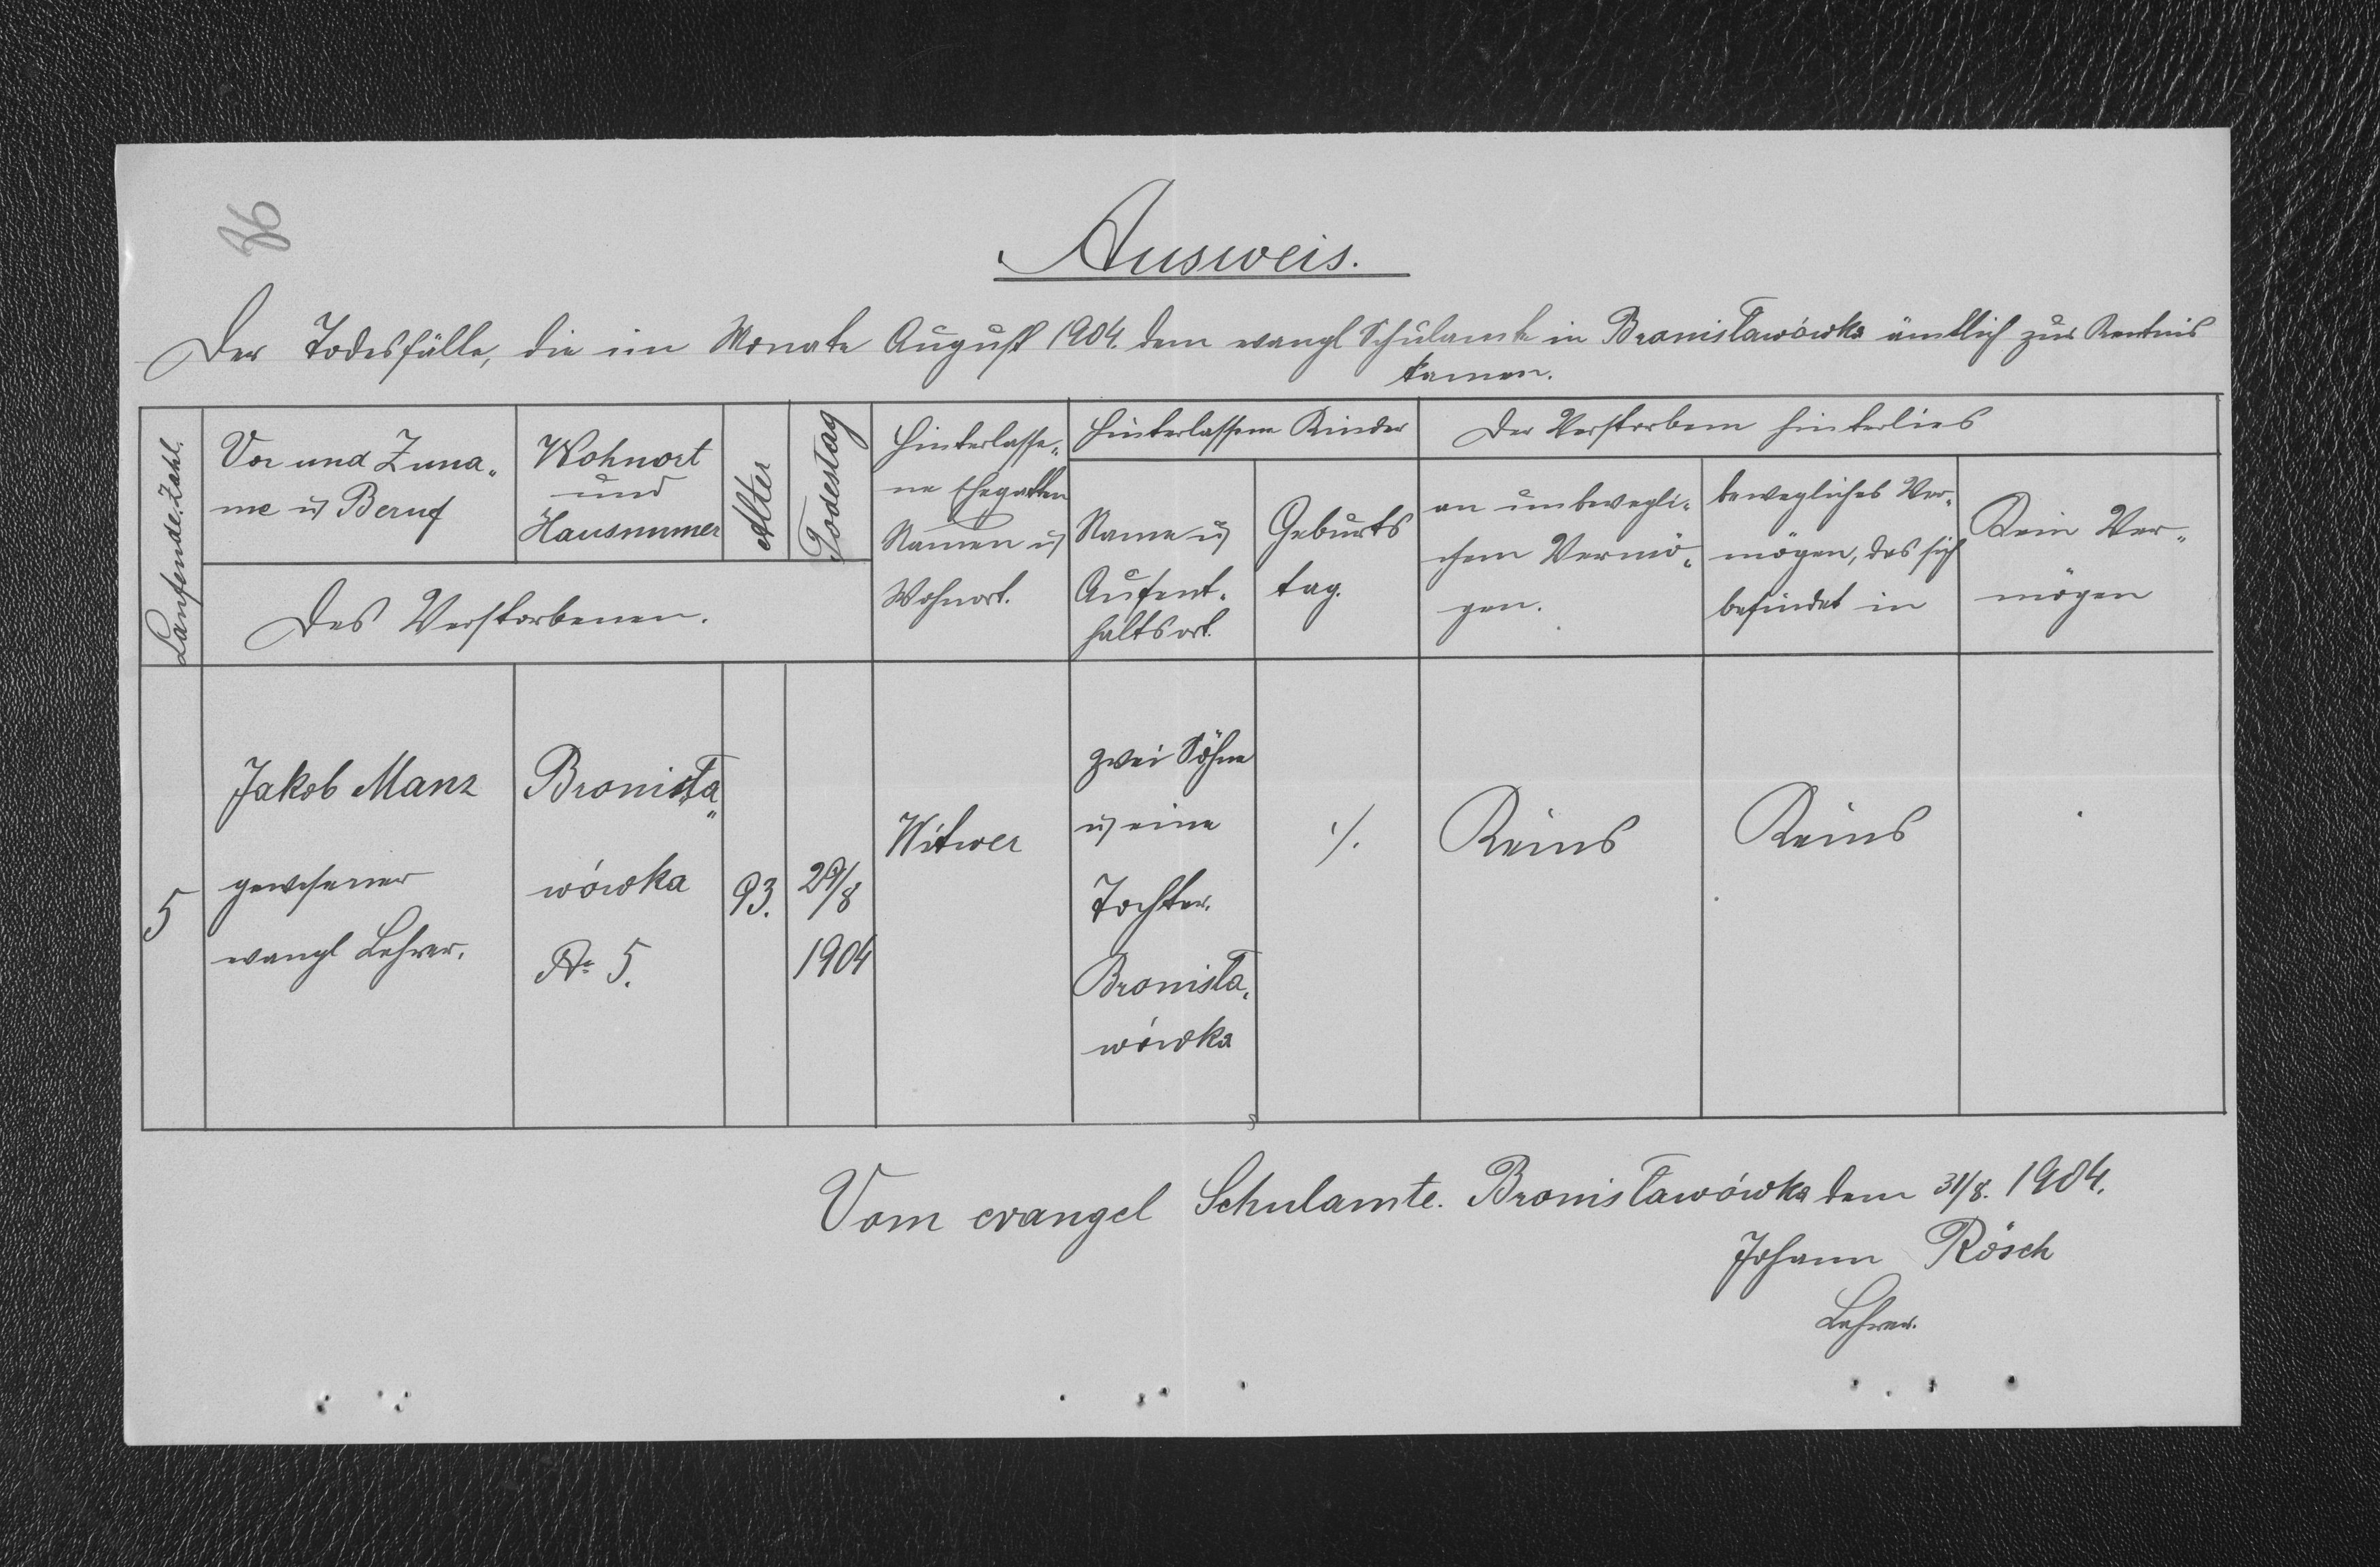 36
Ausweis.
Der Todesfälle, die im Monate August 1904. dem evangl Schulamte in Bronisławówka ämtlich zur Kentnis
kamen.
Laufende Zahl.
Vor und Zuna„
me u Beruf
Wohnort
und
Hausnummer
Alter
Todestag
Des Verstorbenen.
Hinterlasse„
ne Ehegatten
Namen u
Wohnort.
Hinterlassene Kinder
Name u
Aufent„
haltsort.
Geburts
tag.
Der Verstorbene hinterlies
an unbewegli„
chem Vermö„
gen.
bewegliches Ver„
mögen, das sich
befindet in
Kein Ver„
mögen
5
Jakob Manz
gewesener
evangl Lehrer.
Bronisła„
wówka
No 5.
93.
29/8
1904
Witwer
zwei Söhne
u eine
Tochter.
Bronisła„
wówka
./.
Keins
Keins
Vom evangel Schulamte. Bronisławówka dem 31/8. 1904.
Johann Rösch
Lehrer.